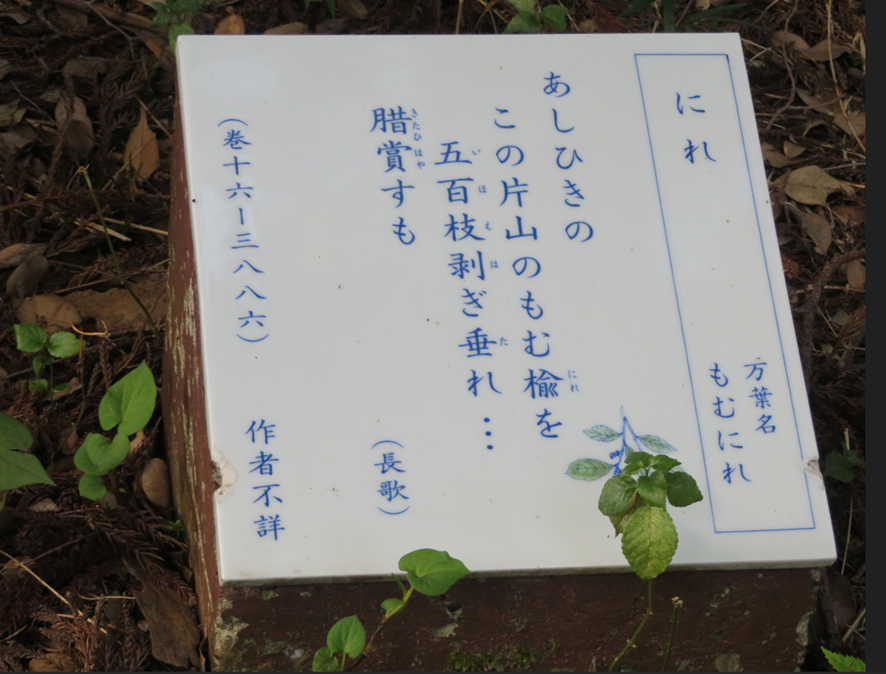 にれ
万葉名
もむにれ
あしひきの
この片山のもむ楡を
にれ
五百枝剥ぎ垂れ…
いほえはた
腊賞すも
きたひはや
（長歌）
（巻十六ー三八八六）
作者不詳